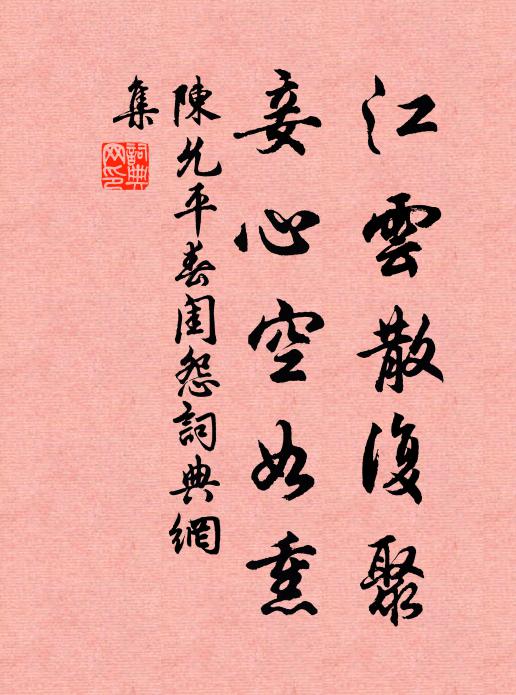 江雲散復聚
妾心空如熏
陳允平春閨怨詞典網
集
詞典網印